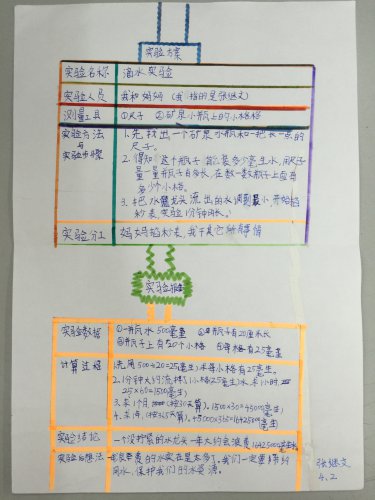 实验方案
实验名称 滴水实验
实验人员 我和妈妈 (我指的是张继文)
测量工具 ①尺子 ②矿泉小瓶上的小格格
实验方法与实验步骤 1.先找出一个矿泉小瓶和一把长一点的
尺子。
2.得知这个瓶子能是多少毫生水,用尺子
量一量瓶子有多长,在数一数瓶子上应有
多少个小格。
3.把水龙头流出的水调到最小,开始掐
秒表,实验1分钟周长。
实验分工 妈妈掐秒表,我干其它所有事情
实验报告
实验数据 ①一瓶水500毫生 ②瓶子有20厘米长
③瓶子上有20个小格 ④每格有25毫生
计算过程 1.先用500÷20=25(毫生)求每小格有25毫生。
2.1分钟大约流掉1小格(25毫生)水,1小时,
25×60=1500(毫生)
3.求1个月(按30天算),1500×30=45000(毫生)
4.求1年,(按365天算),45000×365=16425000(毫生)
实验结论 一个没拧紧的水龙头一年大约会浪费16425000毫生水。
实验后想法 浪费的水实在是太多了,我们一定要节约
用水,保护我们的水资源。
张继文
4.2